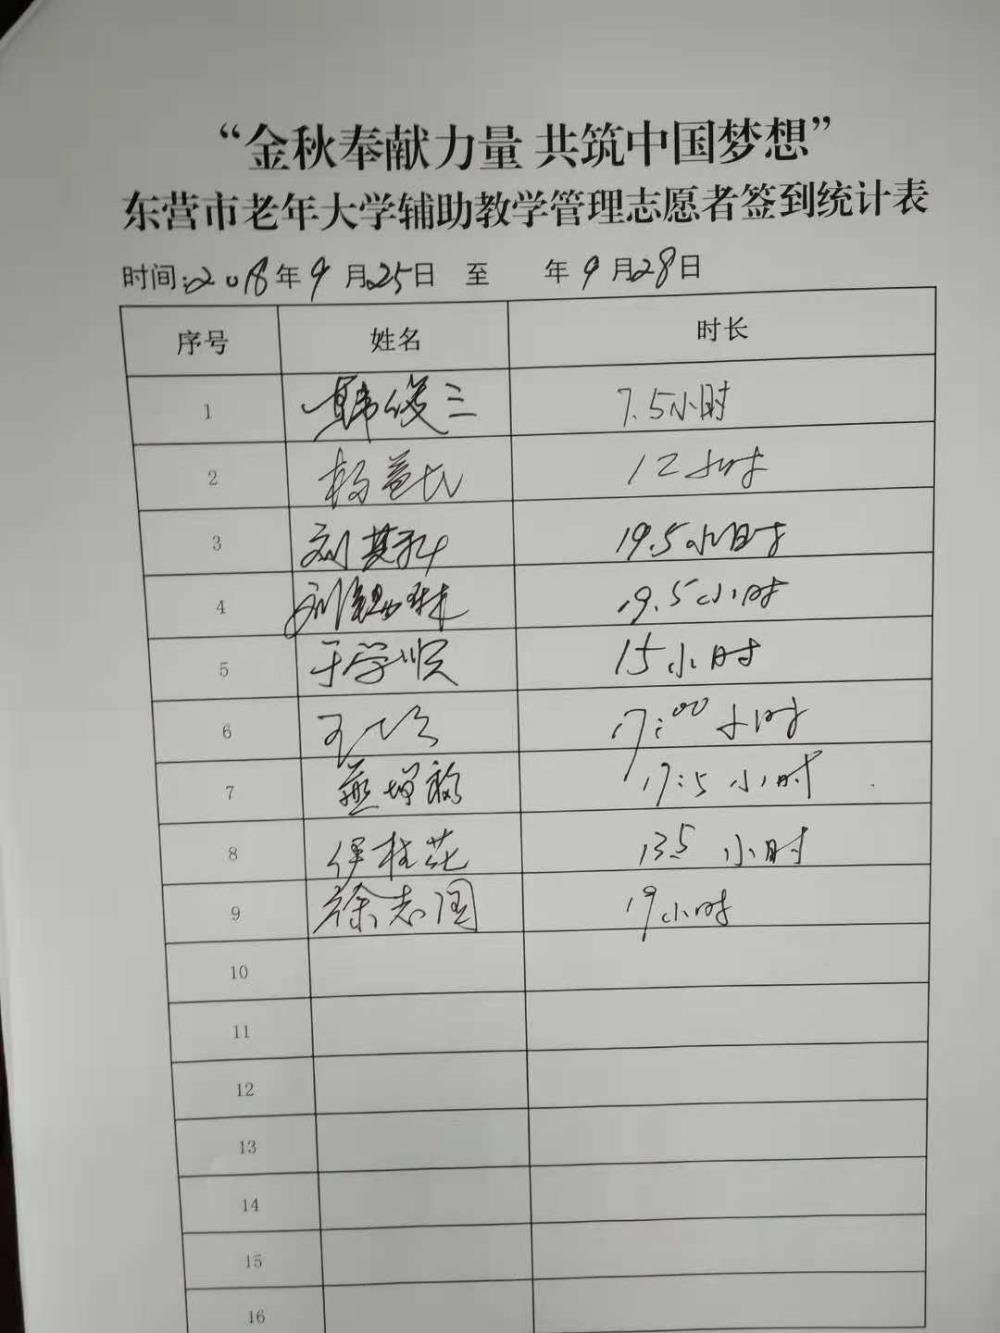 “金秋奉献力量 共筑中国梦想”
东营市老年大学辅助教学管理志愿者签到统计表
时间:2018年9月25日 至 年9月28日
序号 姓名 时长
1 韩俊三 7.5小时
2 杨 12小时
3 刘其科 19.5小时
4 刘锡林 19.5小时
5 于学顺 15小时
6 王 17:00小时
7 燕增敏 17:5小时
8 伊桂花 13.5小时
9 徐志国 19小时
10
11
12
13
14
15
16